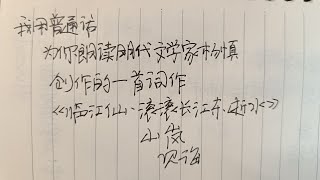 我用普通话
为你朗读明代文学家杨慎
创作的一首词作
《临江仙·滚滚长江东逝水》
山岚